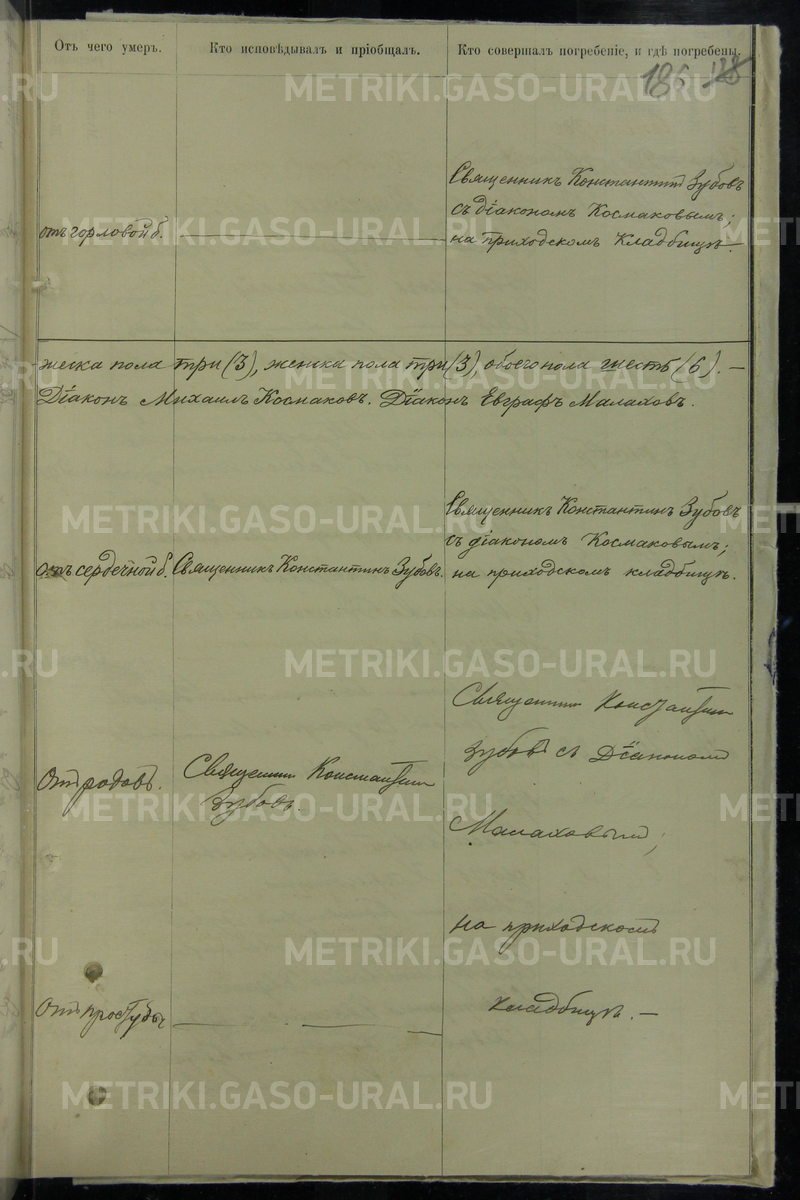 Отъ чего умеръ.
Кто исповѣдывалъ и пріобщалъ.
Кто совершалъ погребеніе, и гдѣ погребены.
186 128
отъ горловой б.
Священникъ Константинъ Зубовъ
съ діакономъ Космаковымъ;
на приходскомъ кладбищѣ.
жеска пола три (3), женска пола три (3), обоего пола шесть (6). —
Діаконъ Михаилъ Космаковъ. Діаконъ Евграфъ Малаховъ.
отъ сердечной б.
Священникъ Константинъ Зубовъ.
Священникъ Константинъ Зубовъ
съ діакономъ Космаковымъ;
на приходскомъ кладбищѣ.
Отъ родовъ.
Священникъ Константинъ
Зубовъ.
Священникъ Константинъ
Зубовъ съ Діакономъ
Малаховымъ;
на приходскомъ
кладбищѣ. —
Отъ простуды
METRIKI.GASO-URAL.RU